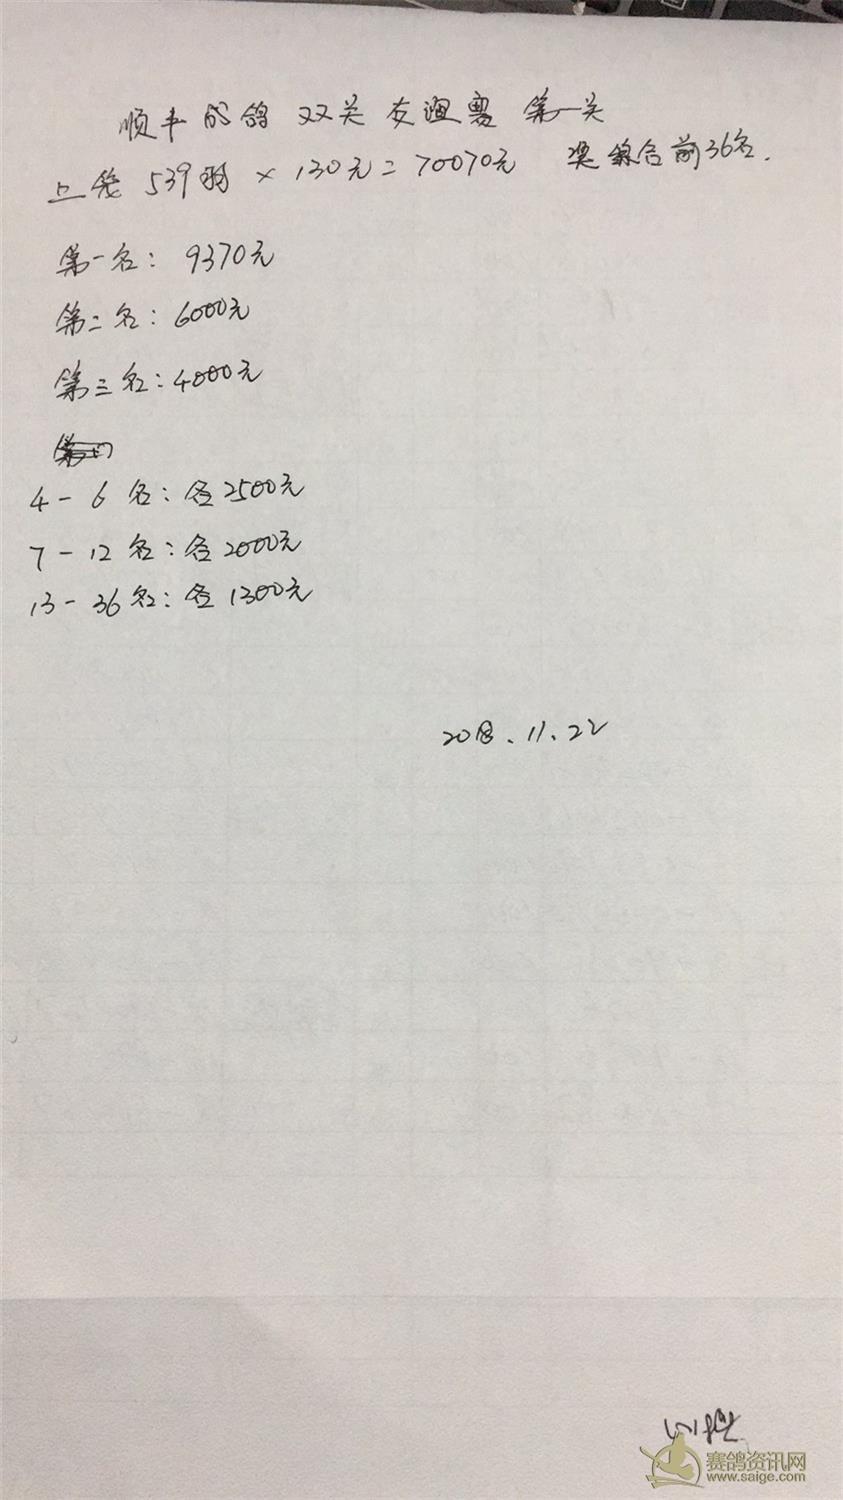 顺丰成鸽双关友谊赛 第一关
上笼 539羽 × 130元 = 70070元 奖综合前36名.
第一名: 9370元
第二名: 6000元
第三名: 4000元
4-6名: 各2500元
7-12名: 各2000元
13-36名: 各1300元
2018.11.22
赛鸽资讯网
www.saige.com